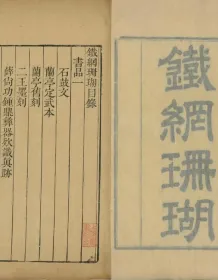 鐵網珊瑚
鐵網珊瑚目錄
書品一
石鼓文
蘭亭定武本
蘭亭舊刻
二王墨刻
薛尚功鐘鼎彝器款識真跡